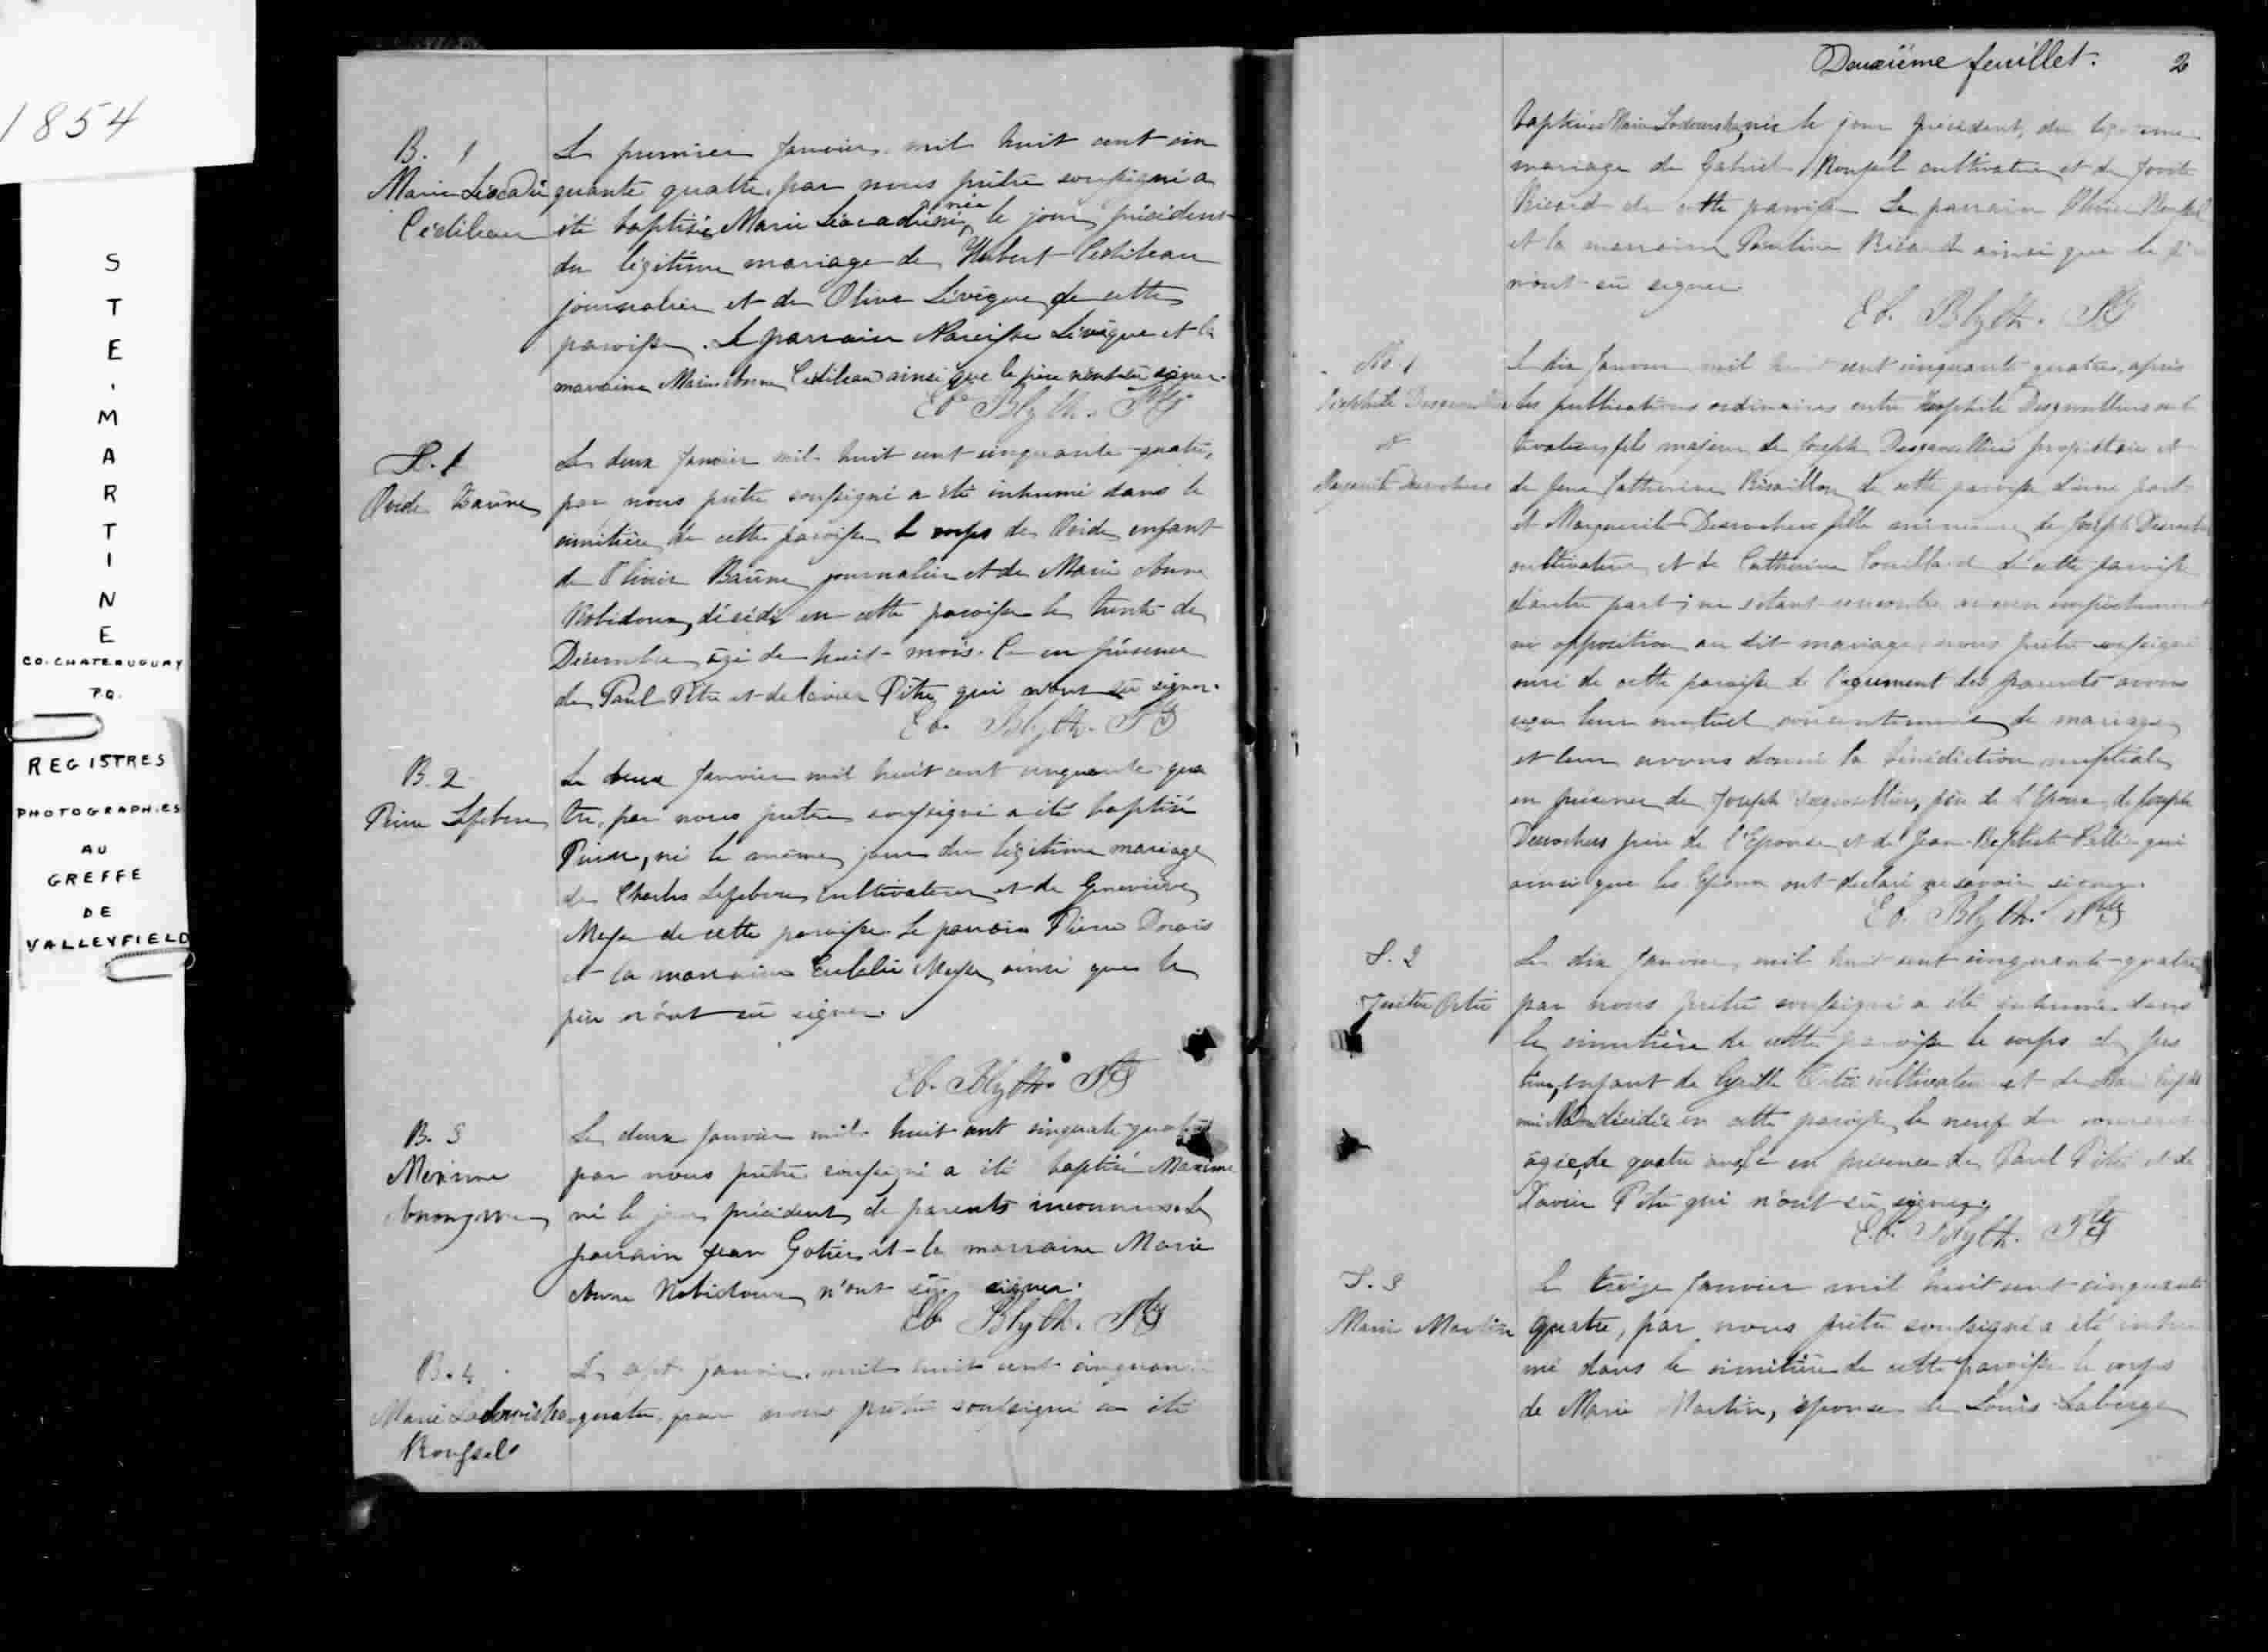 1854
STE-MARTINE
CO. CHATEAUGUAY
P.Q.
REGISTRES
PHOTOGRAPHIÉS
AU
GREFFE
DE
VALLEYFIELD
B. 1
Marie Léocadie
Cédileau
Le premier Janvier mil huit cent cin
quante quatre, par nous prêtre soussigné a
été baptisée Marie Léocadie née le jour précédent
du légitime mariage de Hubert Cédileau
journalier et de Olive Lévêque de cette
paroisse. Le parrain Narcisse Lévêque et la
marraine Marie Anne Cédileau ainsi que le père n'ont sû signer.
Ed. Blyth. Ptre
S. 1
Ovide Baüne
Le deux Janvier mil huit cent cinquante-quatre,
par nous prêtre soussigné a été inhumé dans le
cimitière de cette paroisse le corps de Ovide enfant
de Olivier Baüne journalier et de Marie Anne
Robidoux, décédé en cette paroisse le trente de
Décembre, âgé de huit mois. Ce en présence
de Paul Pitre et de Xavier Pitre qui n'ont sû signer.
Ed. Blyth. Ptre
B. 2
Pierre Lefebvre
Le deux Janvier mil huit cent cinquante-qua
tre, par nous prêtre soussigné a été baptisé
Pierre, né le même jour du légitime mariage
de Charles Lefebvre cultivateur et de Geneviève
de cette paroisse. Le parrain Pierre
et la marraine Eulalie ainsi que le
père n'ont sû signer.
Ed. Blyth. Ptre
B. 3
Maxime
Anonyme
Le deux Janvier mil huit cent cinquante-quatre
par nous prêtre soussigné a été baptisé Maxime
né le jour précédent de parents inconnus. Le
parrain Jean Gotier et la marraine Marie
Anne Robidoux n'ont sû signer.
Ed. Blyth. Ptre
B. 4
Marie Lodowiska
Roussel
Le sept Janvier mil huit cent cinquan
quatre, par nous prêtre soussigné a été
Deuxième feuillet. 2
baptisée Marie Lodowiska, née le jour précédent, du légitime
mariage de Gabriel Roussel cultivateur et de
Ricard de cette paroisse Le parrain Roussel
et la marraine Pauline Ricard ainsi que le
n'ont sû signer.
Ed. Blyth. Ptre
M. 1
et
Marguerite Desrochers
Le dix Janvier mil huit cent cinquante-quatre, après
les publications ordinaires entre Théophile
tivateur, fils majeur de Joseph et
de feue Catherine Bisaillon de cette paroisse d'une part
et Marguerite Desrochers fille mineure de Joseph
cultivateur et de Catherine Couillard de cette paroisse
d'autre part; ne s'étant rencontré aucun empêchement
ni opposition au dit mariage, nous prêtre soussigné
curé de cette paroisse de l'agrément des parents avons
reçu leur mutuel consentement de mariage
et leur avons donné la bénédiction nuptiale
en présence de Joseph père de l'Epoux, de Joseph
Desrochers père de l'Epouse, et de Jean-Baptiste qui
ainsi que les Epoux ont déclaré ne savoir signer.
Ed. Blyth. Ptre
S. 2
Le dix Janvier mil huit cent cinquante-quatre
par nous prêtre soussigné a été inhumée dans
le cimitière de cette paroisse le corps de
enfant de cultivateur et de
décédée en cette paroisse le neuf du courant
âgée de quatre ans. Ce en présence de Paul Pitre et de
Xavier Pitre qui n'ont sû signer.
Ed. Blyth. Ptre
S. 3
Marie Martin
Le treize Janvier mil huit cent cinquante
quatre, par nous prêtre soussigné a été inhu
mé dans le cimitière de cette paroisse le corps
de Marie Martin, épouse de Louis Laberge